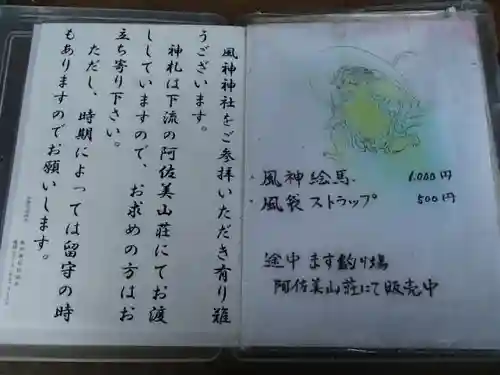 風神神社をご参拝いただき有り難
うございます。
神札は下流の阿佐美山荘にてお渡
ししていますので、お求めの方はお
立ち寄り下さい。
ただし、時期によっては留守の時
もありますのでお願いします。
・風神絵馬 1,000円
・風袋ストラップ 500円
途中ます釣り場
阿佐美山荘にて販売中